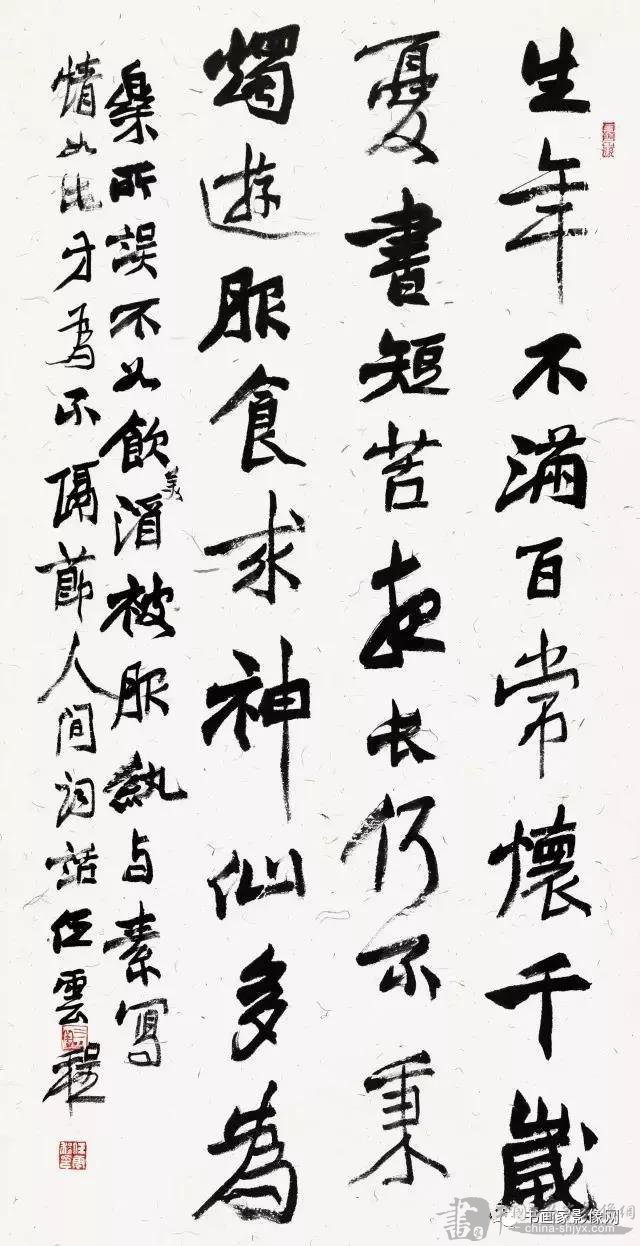 生年不滿百常懷千歲
憂書短苦夜長何不秉
燭遊服食求神仙多為
樂所誤不如飲美酒被服紈与素寫
情如此方為不隔節人間詞話任雲程
书画家影像网
china-shjyx.com